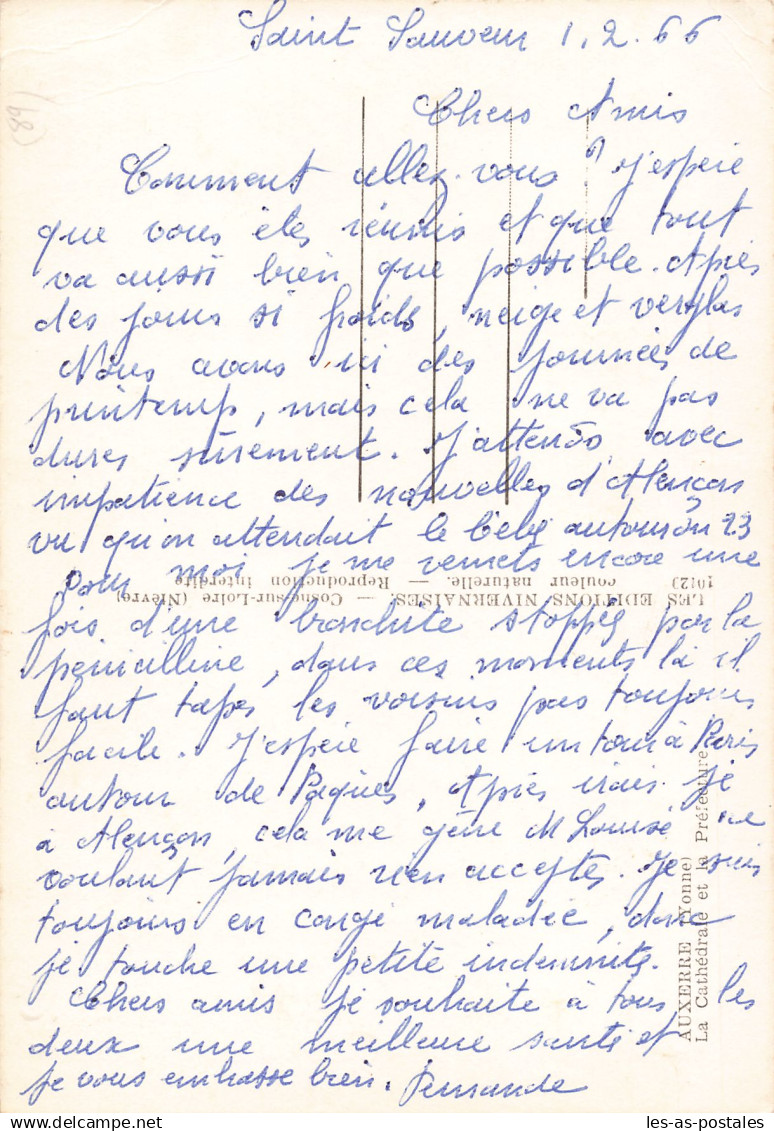 Saint Sauveur 1.2.66
(68)
Chers Amis
Comment allez-vous ? J'espère
que vous êtes réunis et que tout
va aussi bien que possible. Après
des jours si froids, neige et verglas
Nous avons ici des journées de
printemps, mais cela ne va pas
durer sûrement. J'attends avec
impatience des nouvelles d'Alençon
vu qu'on attendait le bébé autour du 23
pour moi je me remets encore une
fois d'une bronchite stoppée par la
penicilline, dans ces moments là il
faut taper les voisins pas toujours
facile. J'espère faire un tour à Paris
autour de Pâques, Après irais je
à Alençon, cela me gêne M Louise ne
voulant jamais rien accepter. Je suis
toujours en congé maladie, donc
je touche une petite indemnité.
Chers amis je souhaite à tous les
deux une meilleure santé et
je vous embrasse bien. Fernande
LES EDITIONS NIVERNAISES. — Cosne-sur-Loire (Nièvre)
10123 couleur naturelle. — Reproduction interdite
AUXERRE (Yonne)
La Cathédrale et la Préfecture
les-as-postales